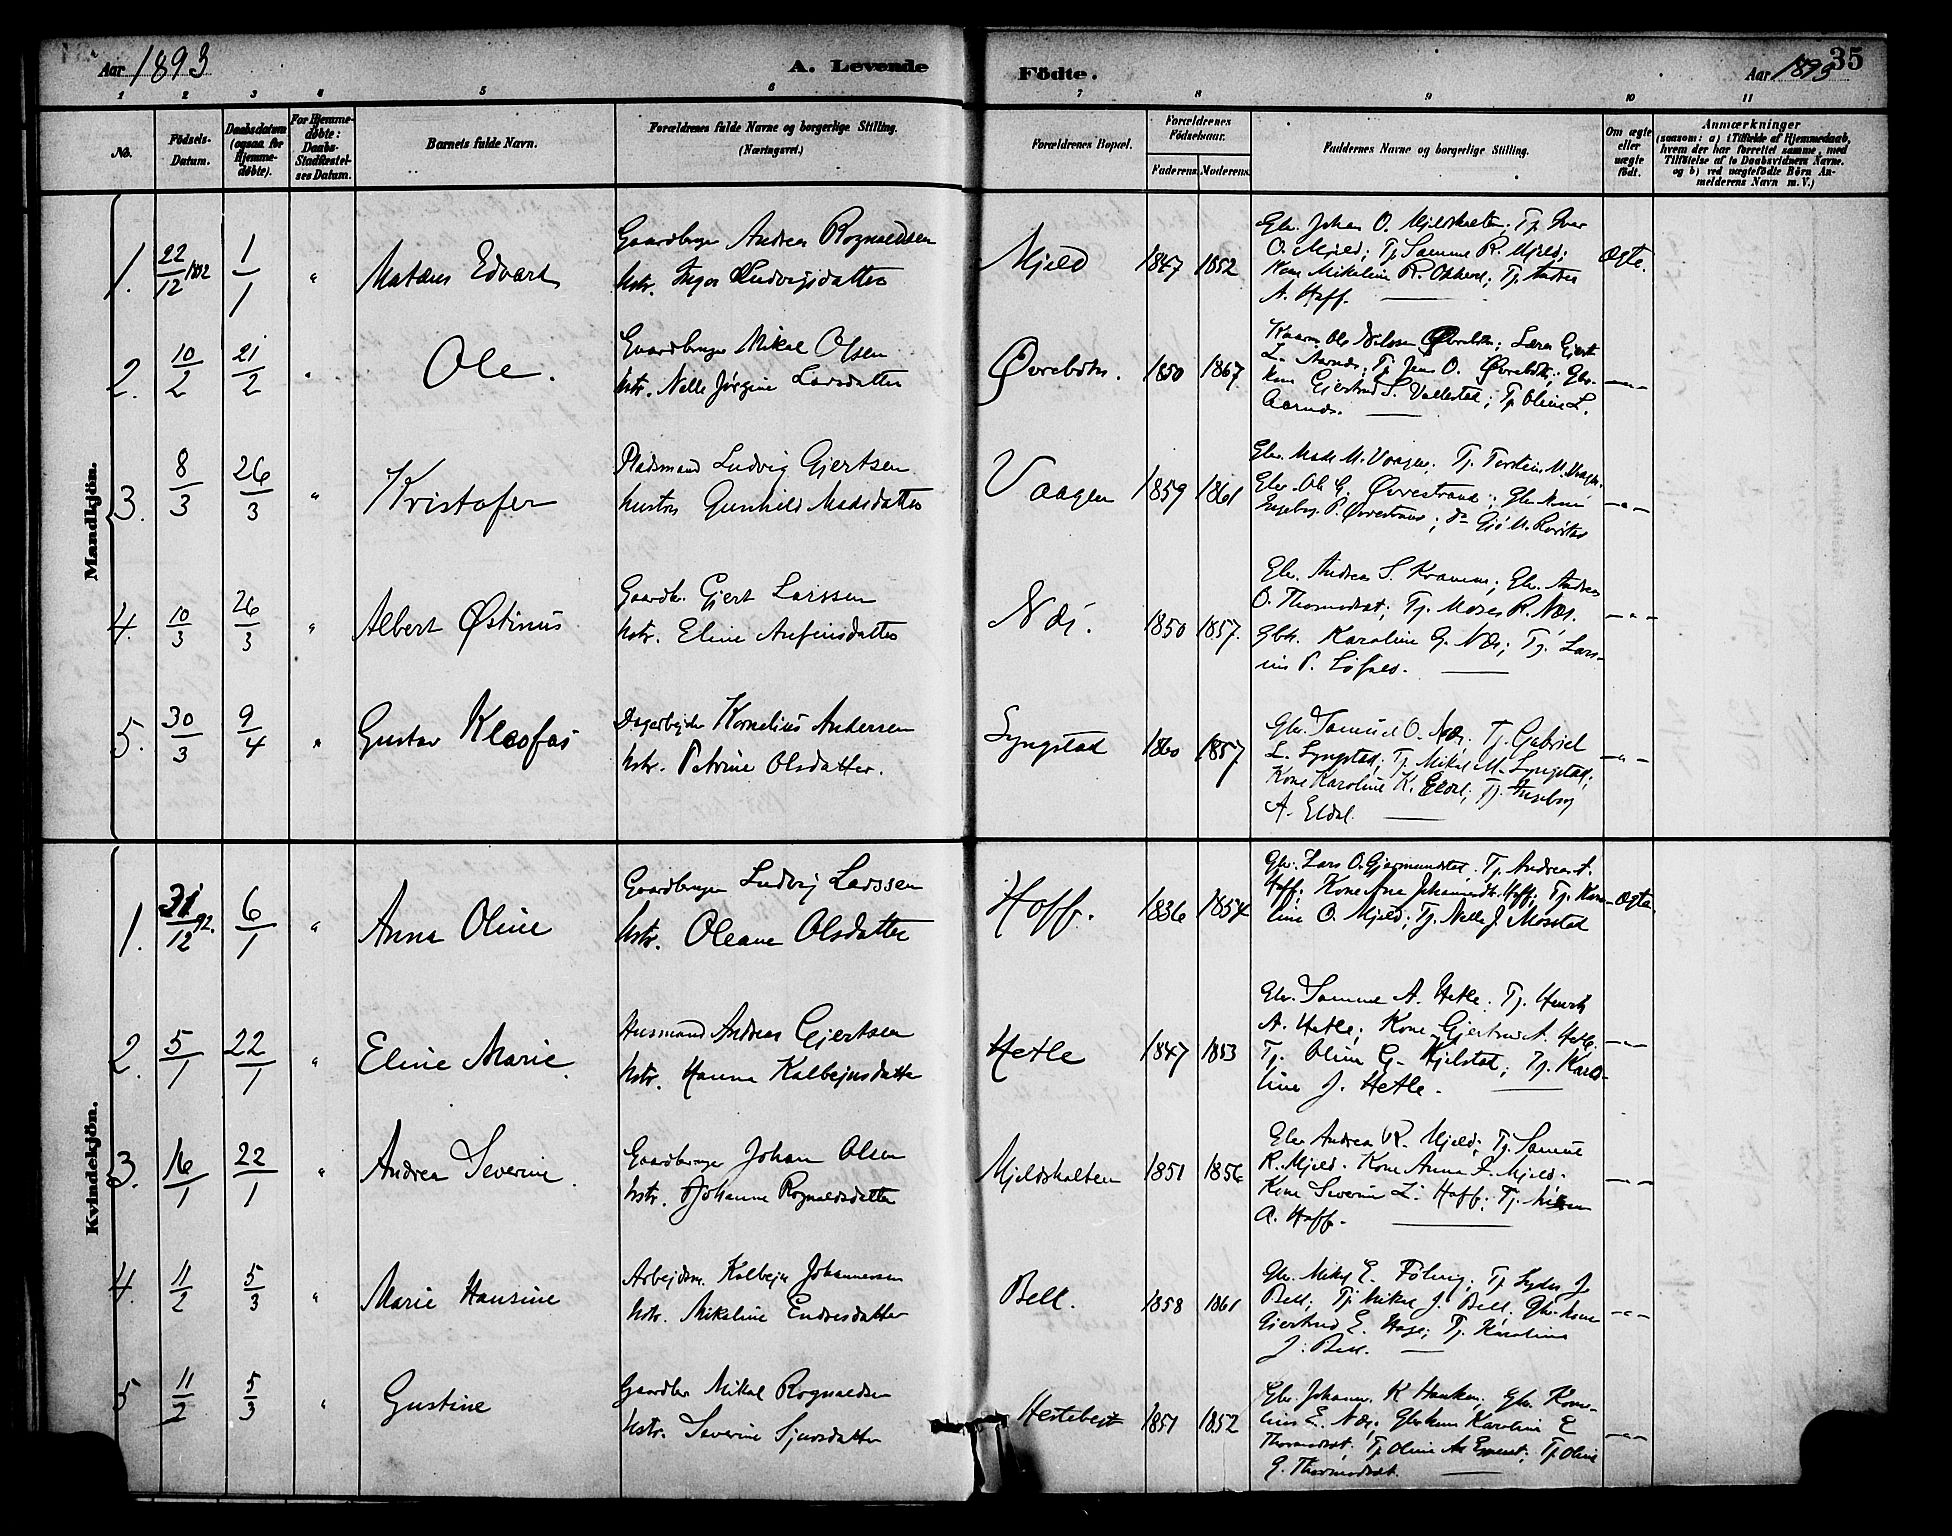 Aar 1893
A. Levende
Födte.
Aar 1893
35
1 2 3 4 5 6 7 8 9 10 11
No.
Födsels-Datum.
Daabsdatum (ogsaa for Hjemme-döbte).
For Hjemme-döbte: Daabs-Stadfæstel-ses Datum.
Barnets fulde Navn.
Forældrenes fulde Navne og borgerlige Stilling.
(Næringsvei.)
Forældrenes Bopæl.
Forældrenes Födselsaar.
Faderens. Moderens.
Faddernes Navne og borgerlige Stilling.
Om ægte eller uægte födt.
Anmærkninger
(saasom: a) i Tilfælde af Hjemmedaab,
hvem der har forrettet samme, med
Tilföielse af to Daabsvidners Navne.
og b) ved uægtefödte Börn An-
melderens Navn m. V.)
Mandkjön.
1. 22/12 1892 1/1 " Matæus Edvart
Gaardbruger Andreas Rognaldsen
hstr. Inger Ludvigsdatter
Mjeld 1847 1852
Gbr. Johan O. Mjeldshalten; Tj. Iver
O. Mjeld; Tj Samuel R. Mjeld;
Kone Mikeline R.
A. Hoff.
Ægte.
2. 10/2 21/2 " Ole.
Gaardbruger Mikal Olsen
hstr. Nelle Jørgine Larsdatter
Øvrebotn. 1850 1867.
Ole Nilssen Øvrebotn; Lærer Gjert
L. Aarnes; Tj Jens O. Øvrebotn; Gbr.
kone Gjertrud S. Vallestad; Tj Oline L.
Aarnes.
— " —
3. 8/3 26/3 " Kristofer
Pladsmand Ludvig Gjertsen
hustru Gunhild Madsdatter
Vaagen 1859 1861
Gbr. Mads M. Vaagen. Tj. Torstein M. Vaagen.
Gbr. Ole G. Øvrestrand; Gbr. kone
Ingeborg P. Øvrestrand;
— " —
4. 10/3 26/3 " Albert Østinus
Gaardbr. Gjert Larssen
hstr. Eline Anfinsdatter
Næs. 1850 1857.
Gbr. Andreas S. Kramm; Gbr. Andreas
O. Thormodsæt; Tj. Moses R. Næs.
Gbk. Karoline G. Næs; Tj. Lars-
ine P.
— " —
5. 30/3 9/4 " Gustav Kleofas
Dagarbejder Kornelius Andersen
hstr. Petrine Olsdatter.
Lyngstad 1860 1857
Gbr. Samuel O. Næs; Tj. Gabriel
L. Lyngstad; Tj. Mikal M. Lyngstad;
Kone Karoline K. Eldal; Tj. Ingeborg
A. Eldal.
— " —
Kvindekjön.
1. 31/12 92. 6/1 " Anna Oline
Gaardbruger Ludvig Larssen
hstr. Oleane Olsdatter
Hoff. 1836 1854
Gbr. Lars O. Gjermundstad. Tj. Andreas A.
Hoff; Kone Ane Johannesdtr. Hoff; Tj. Karo-
line O. Mjeld; Tj. Nelle J. Mosstad
Ægte.
2. 5/1 22/1 " Eline Marie.
Husmand Andreas Gjertsen
hstr. Hanna Kolbejnsdatter
Hetle 1847 1853
Gbr. Samuel A. Hetle. Tj. Henrik
A. Hetle; Kone Gjertrud A. Hetle.
Tj. Oline G. Kjelstad; Tj. Karo-
line J. Hetle.
— " —
3. 16/1 22/1 " Andrea Severine.
Gaardbruger Johan Olsen
hstr. Johanne Rognaldsdatter
Mjeldshalten 1851 1856
Gbr Andreas R. Mjeld; Tj. Samuel
R. Mjeld. Kone Anna I. Mjeld.
Kone Severine L. Hoff; Tj.
A. Hoff.
— " —
4. 11/2 5/3 " Marie Hansine
Arbejdsm. Kolbejn Johannessen
hstr. Mikeline Endresdatter
Bell. 1858 1861
Gbr. Mikal E. Tj Lyder J.
Bell; Tj. Mikal J. Bell. Gbr. kone
Gjertrud E. Tj. Karoline
J. Bell.
— " —
5 11/2 5/3 " Gustine
Gaardbr Mikal Rognaldsen
hstr. Severine Sjursdatter
Hestebejt 1851 1852
Gbr. Johannes K Hauken; Gbr. Korne-
lius E. Næs; Gbr kone Karoline E
Thormodsæt; Tj. Oline Tj Oline
G. Thormodsæt.
— " —